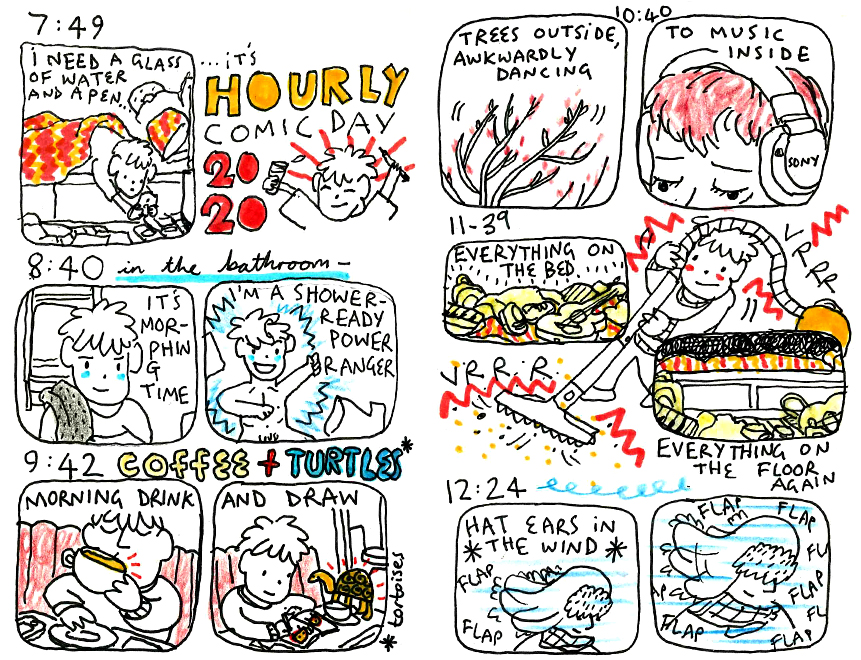 7:49
I NEED A GLASS
OF WATER
AND A PEN...
...IT'S
HOURLY
COMIC DAY
20
20
8:40 in the bathroom-
IT'S
MOR-
PHIN
G
TIME
I'M A SHOWER-
READY
POWER
RANGER
9:42 COFFEE + TURTLES*
MORNING DRINK
AND DRAW
* tortoises
10:40
TREES OUTSIDE,
AWKWARDLY
DANCING
TO MUSIC
INSIDE
SONY
11-39
EVERYTHING ON
THE BED
VRRR
VRRR
EVERYTHING ON
THE FLOOR
AGAIN
12:24
HAT EARS IN
* THE WIND *
FLAP
FLAP
FLAP
FLAP
FLAP
FLAP
FLAP
FLAP